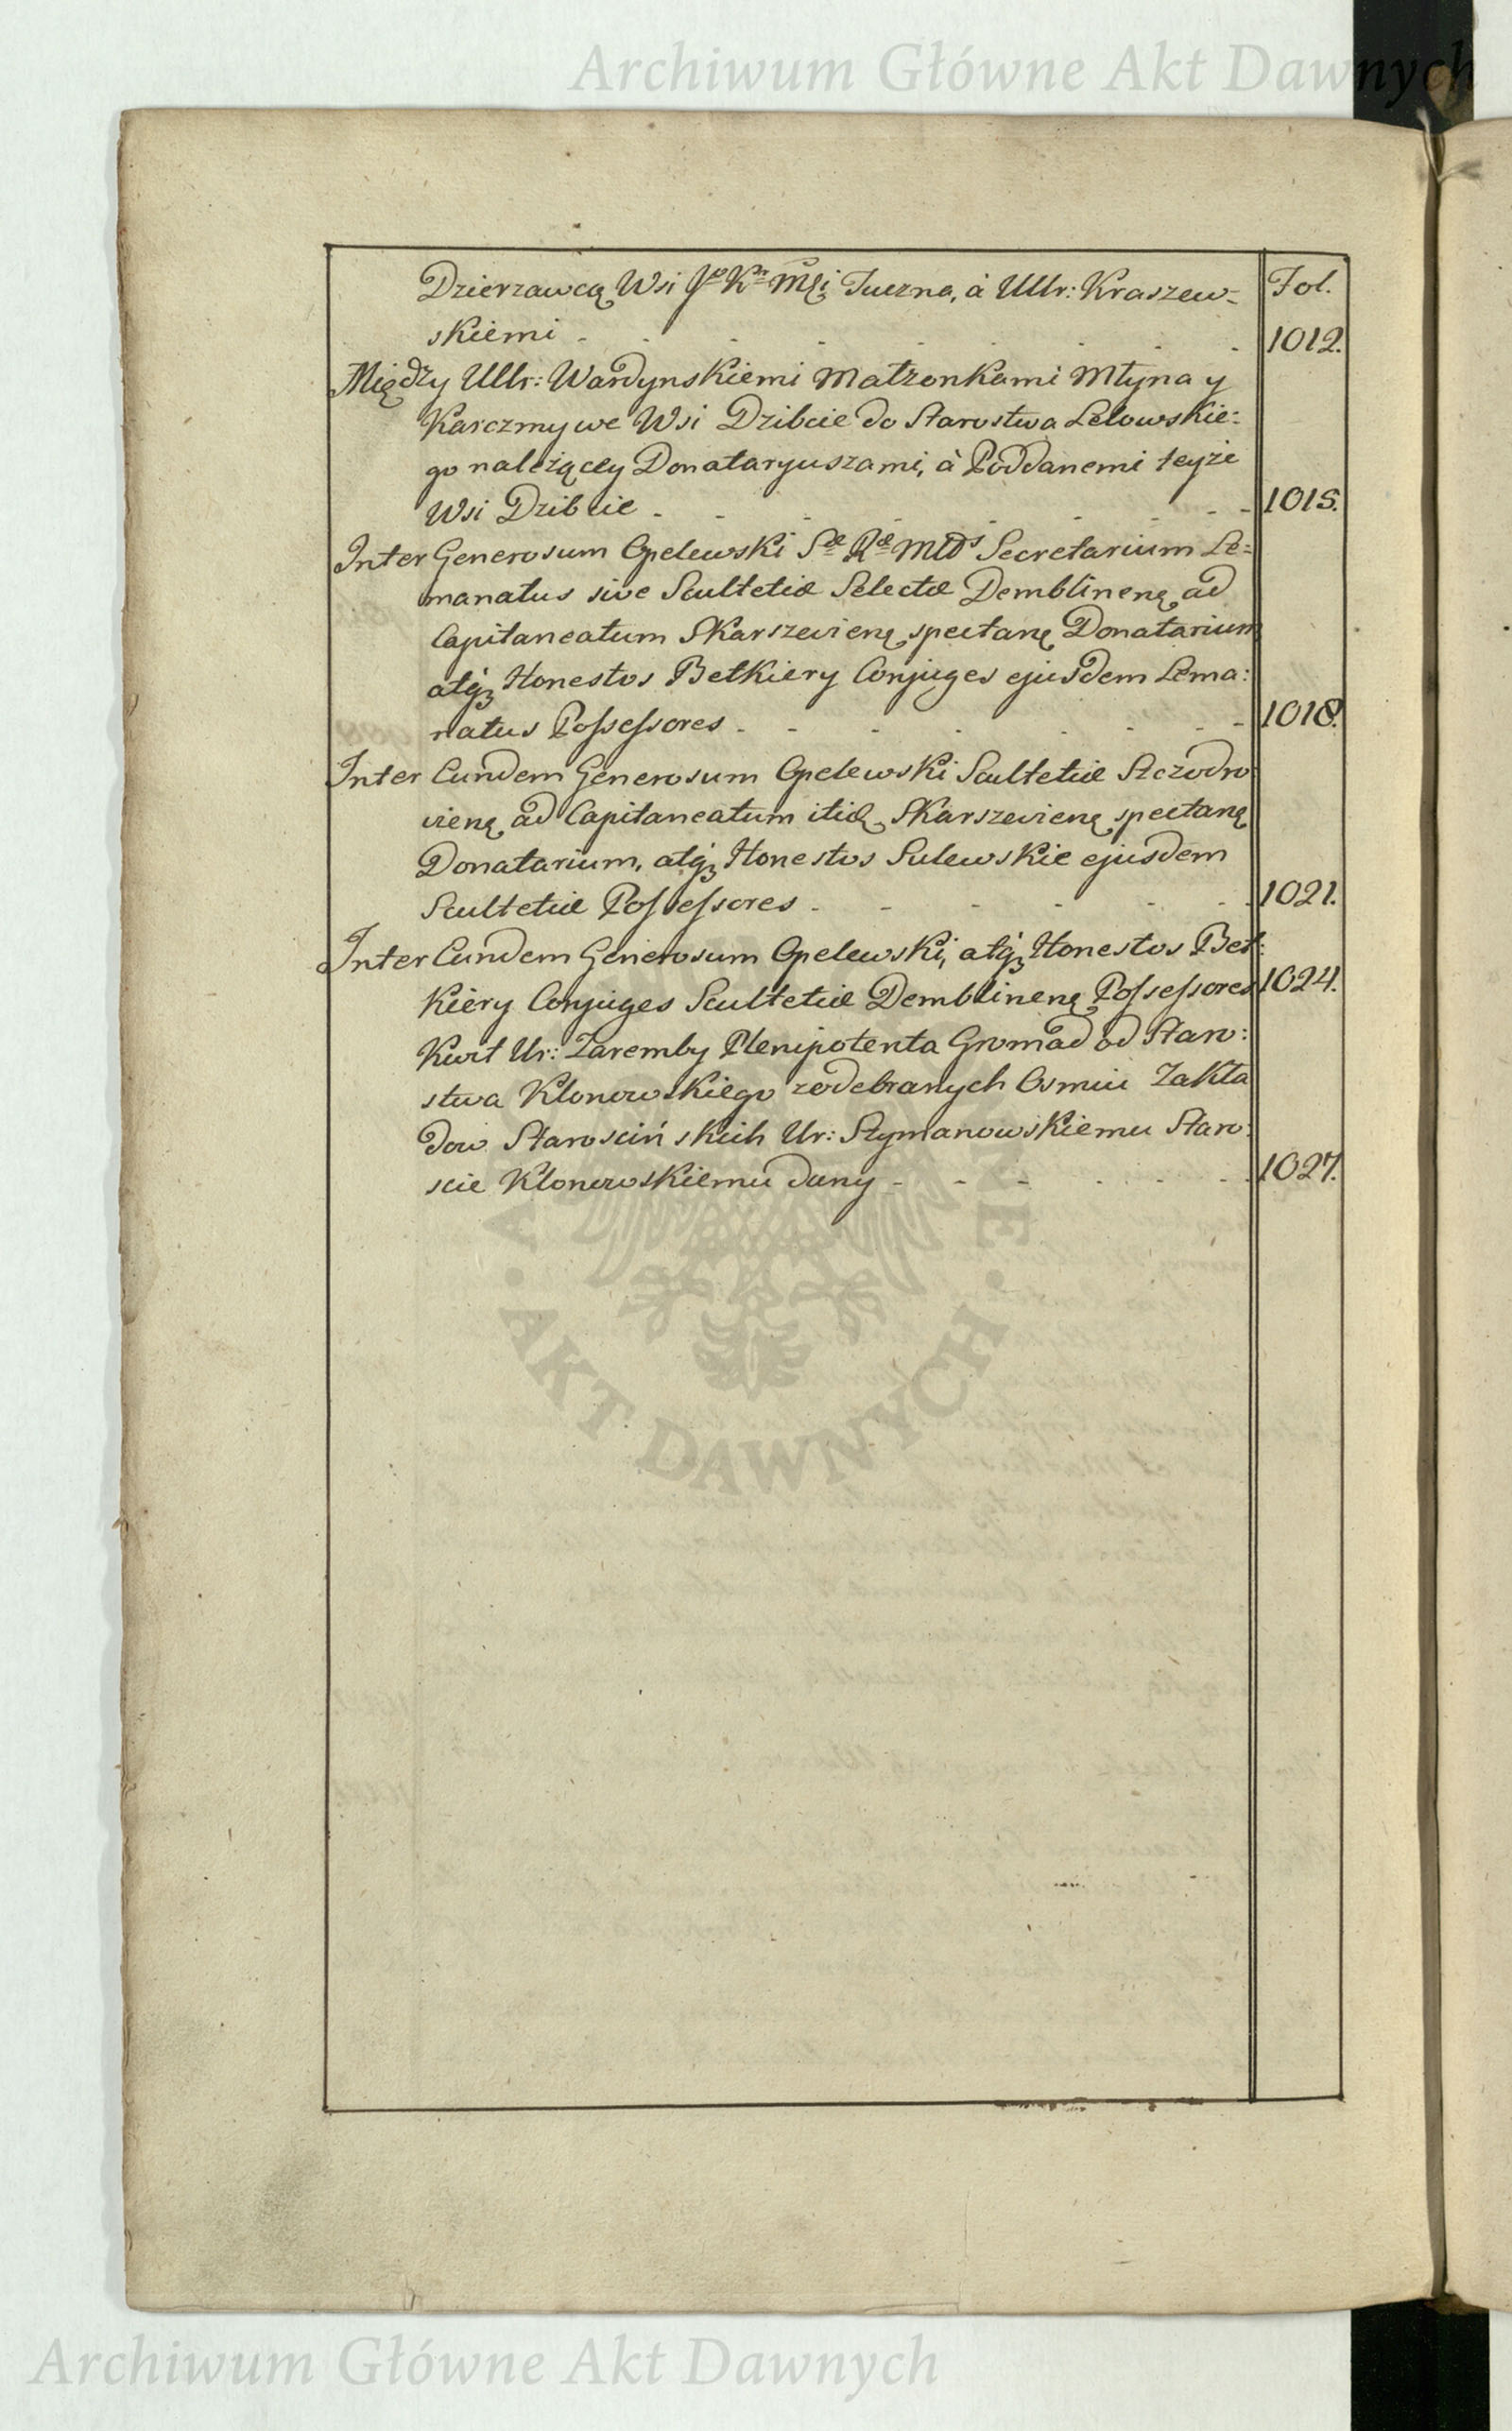 Archiwum Główne Akt Dawnych
Dzierzawcą Wsi Jo Kr Mći Tuczna, à Ullr: Kraszew- Fol.
skiemi - - - - - - - - 1012.
Między Ullr: Wardynskiemi Małżonkami Młyna y
Karczmy we Wsi Dzibcie do Starostwa Lelowskie:
go należącey Donataryuszami, à Poddanemi teyże
Wsi Dzibcie - - - - - - - - 1015.
Inter Generosum Opelewski Sæ Ræ Mttis Secretarium Le:
manatus sive Scultetiæ Selectæ Demblineñ ad
Capitaneatum Skarszevieñ spectanę Donatarium
atq3 Honestos Betkiery Conjuges ejusdem Lema:
natus Possessores - - - - - - - 1018.
Inter Eundem Generosum Opelewski Scultetiæ Szczodro
vienę ad Capitaneatum itidę Skarszevienę spectanę
Donatarium, atq3 Honestos Sulewskie ejusdem
Scultetiæ Possessores - - - - - - 1021.
Inter Eundem Generosum Opelewski, atq3 Honestos Bet:
kiery Conjuges Scultetiæ Demblinenę Possessores 1024.
Kwit Ur: Zaremby Plenipotenta Gromad od Staro:
stwa Klonowskiego zodebranych Osmiu Zakła
dow Starościńskich Ur: Szymanowskiemu Staro:
scie Klonowskiemu dany - - - - - - 1027.
AKT DAWNYCH
Archiwum Główne Akt Dawnych